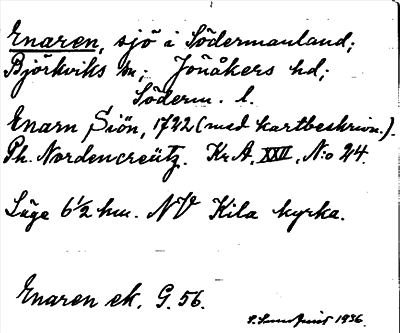 Enaren, sjö i Södermanland;
Björkviks sn; Jönåkers hd;
Söderm. l.
Enarn Siön, 1722 (med kartbeskrivn.).
Ph. Nordencreütz. Kr.A. XXII, N:o 24.
Läge 6 1/2 km. NV Kila kyrka.
Enaren ek. G. 56.
S. Sundquist 1936.